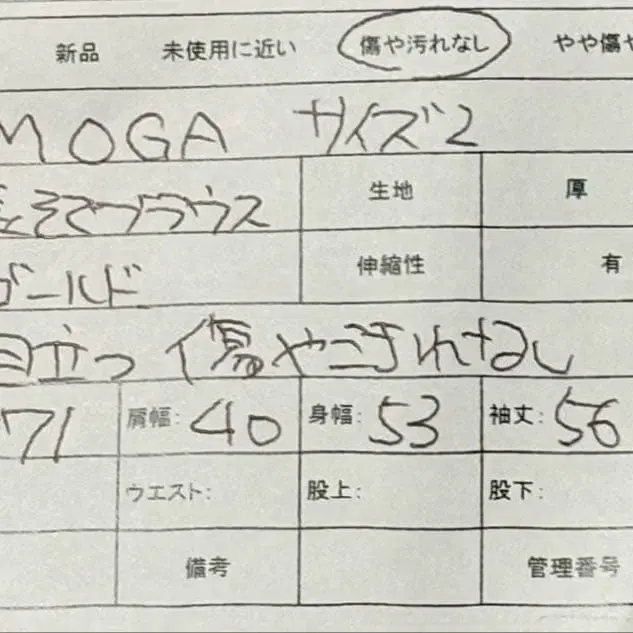 新品 未使用に近い 傷や汚れなし やや傷や
MOGA サイズ2
長そでブラウス 生地 厚
ゴールド 伸縮性 有
目立つ傷やよごれなし
71 肩幅: 40 身幅: 53 袖丈: 56
ウエスト: 股上: 股下:
備考 管理番号